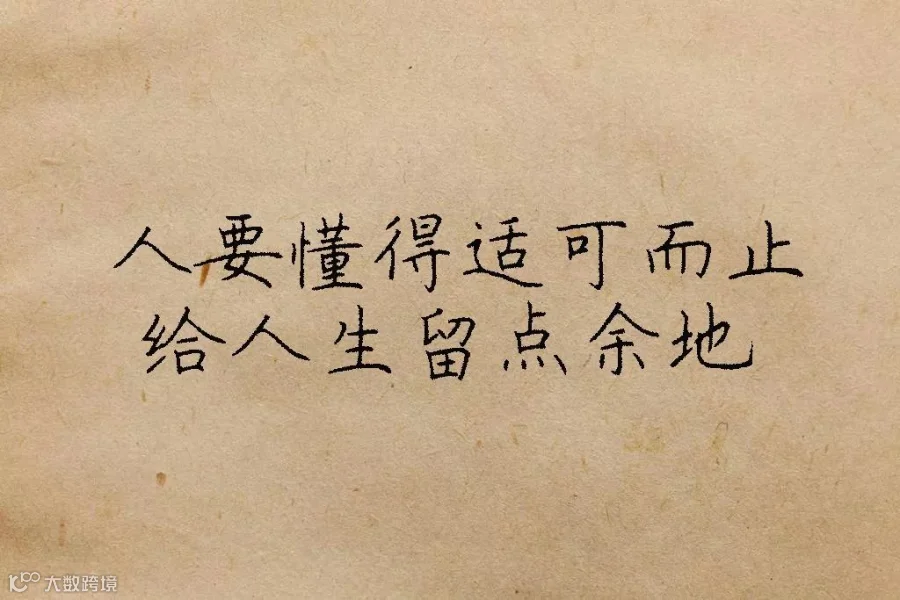 人要懂得适可而止
给人生留点余地
大数跨境